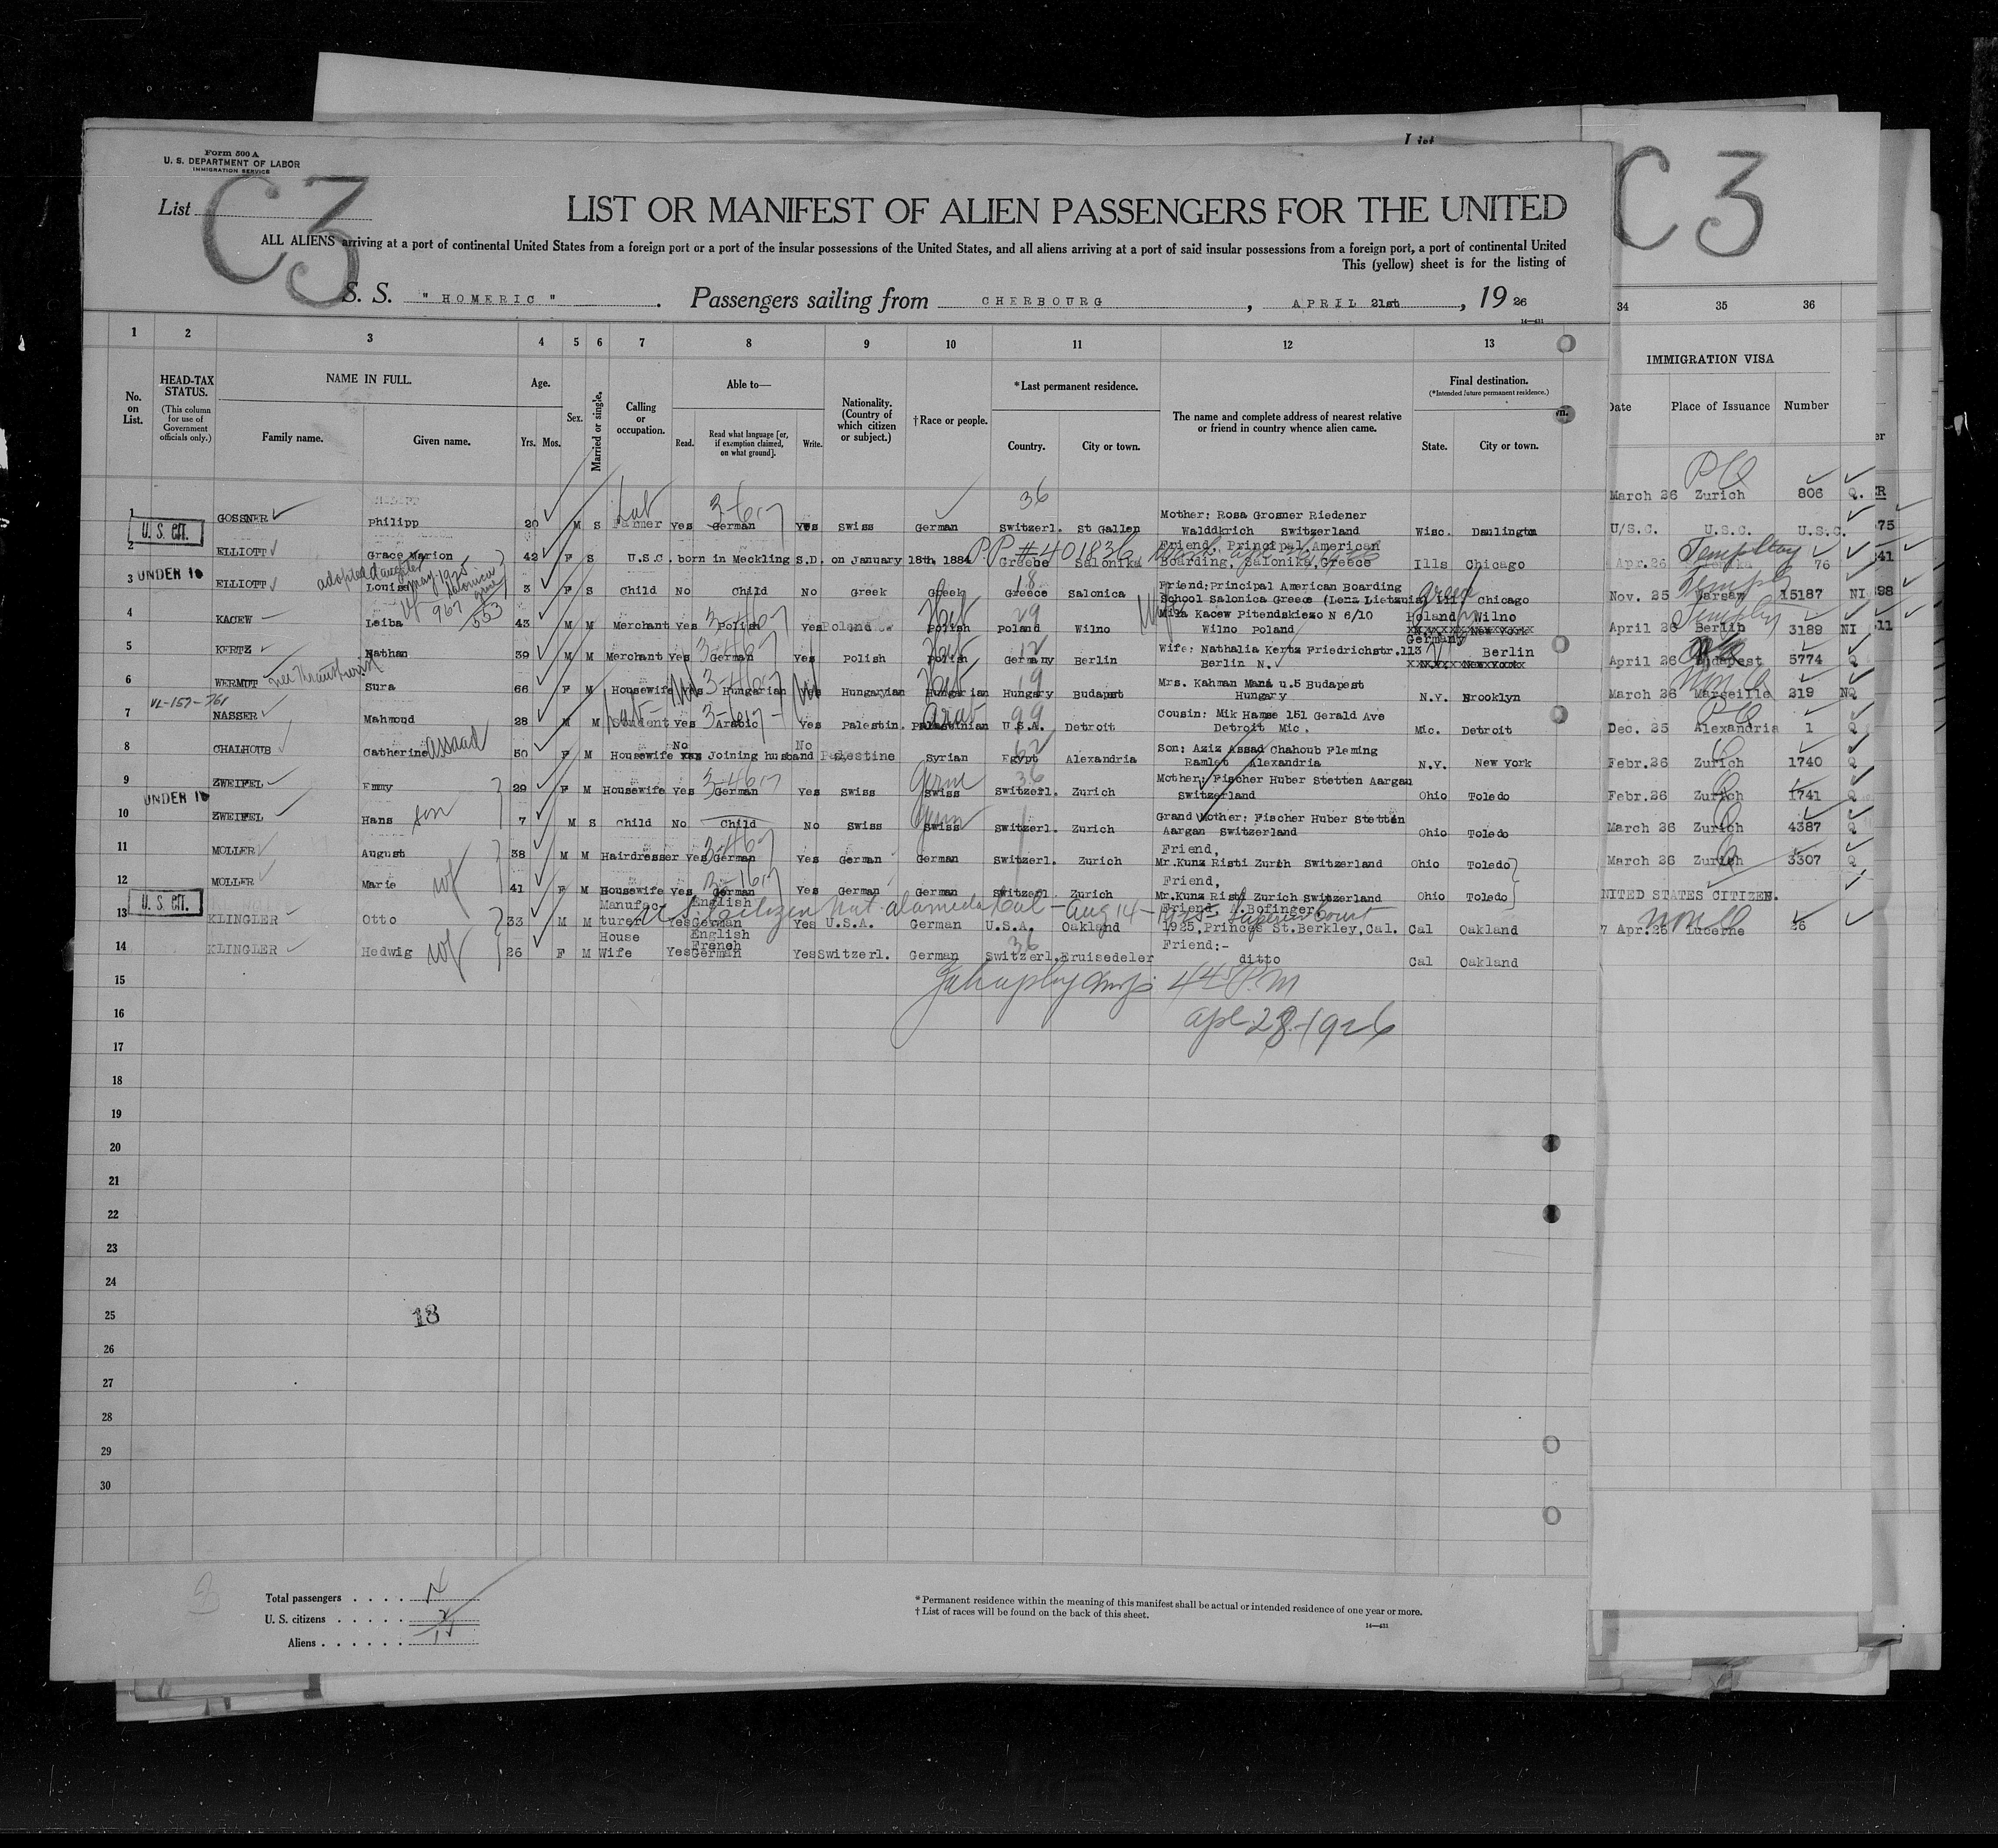 Form 500 A
U. S. DEPARTMENT OF LABOR
IMMIGRATION SERVICE
List
C3
LIST OR MANIFEST OF ALIEN PASSENGERS FOR THE UNITED
ALL ALIENS arriving at a port of continental United States from a foreign port or a port of the insular possessions of the United States, and all aliens arriving at a port of said insular possessions from a foreign port, a port of continental United
This (yellow) sheet is for the listing of
S. S. "HOMERIC". Passengers sailing from CHERBOURG, APRIL 21st, 1926
14—431
1 2 3 4 5 6 7 8 9 10 11 12 13
No. on List.
HEAD-TAX STATUS.
(This column for use of Government officials only.)
NAME IN FULL.
Family name. Given name.
Age.
Yrs. Mos.
Sex.
Married or single.
Calling or occupation.
Able to—
Read. Read what language [or, if exemption claimed, on what ground]. Write.
Nationality. (Country of which citizen or subject.)
†Race or people.
*Last permanent residence.
Country. City or town.
The name and complete address of nearest relative or friend in country whence alien came.
Final destination.
(*Intended future permanent residence.)
State. City or town.
1 GOSSNER Philipp 20 M S Farmer Yes German Yes Swiss German Switzerl. St Gallen Mother: Rosa Grosner Riedener Walddkrich Switzerland Wisc. Daulington
U. S. CIT.
2 ELLIOTT Grace Marion 42 F S U.S.C. born in Meckling S.D. on January 18th, 1884 PP #401836 Greece Salonika Friend, Principal American Boarding, Salonika, Greece Ills Chicago
UNDER 16
3 ELLIOTT adopted daughter Louisa 3 F S Child No Child No Greek Greek Greece Salonica Friend;Principal American Boarding School Salonica Greece (Lenz Lietzuia) Ill Chicago
4 KACEW Leiba 43 M M Merchant yes Polish yes Poland Polish Poland Wilno Mila Kacew Pitendskiezo N 6/10 Wilno Poland Poland Wilno
5 KERTZ Nathan 39 M M Merchant yes German yes Polish Polish Germany Berlin Wife: Nathalia Kertz Friedrichstr.113 Berlin N. Germany Berlin
6 WERMUT Sura 66 F M Housewife yes Hungarian yes Hungaryian Hungarian Hungary Budapest Mrs. Kahman Mana u.5 Budapest Hungary N.Y. Brooklyn
7 NASSER Mahmoud 28 M M Student yes Arabic yes Palestin. Palestinian U.S.A. Detroit Cousin: Mik Hamse 151 Gerald Ave Detroit Mic. Mic. Detroit
8 CHALHOUB Catherine Assaad 50 F M Housewife No Joining husband No Palestine Syrian Egypt Alexandria Son: Aziz Assad Chahoub Fleming Ramlet Alexandria N.Y. New York
9 ZWEIFEL Emmy 29 F M Housewife yes German yes Swiss Swiss Switzerl. Zurich Mother: Fischer Huber Stetten Aargau Switzerland Ohio Toledo
UNDER 16
10 ZWEIFEL Hans son 7 M S Child No Child No Swiss Swiss Switzerl. Zurich Grand Mother: Fischer Huber Stetten Aargan Switzerland Ohio Toledo
11 MOLLER August 38 M M Hairdresser yes German yes German German Switzerl. Zurich Friend, Mr.Kunz Risti Zurch Switzerland Ohio Toledo
12 MOLLER Marie wf 41 F M Housewife yes German yes German German Switzerl Zurich Friend, Mr.Kunz Risti Zurich Switzerland Ohio Toledo
U. S. CIT.
U.S. Citizen Nat. Alameda Cal - Aug 14-1925 Superior Court
13 KLINGLER Otto 33 M M Manufacturer Yes English German Yes U.S.A. German U.S.A. Oakland Friend, A.Bofinger 1925, Princes St.Berkley,Cal. Cal Oakland
14 KLINGLER Hedwig wf 26 F M House Wife Yes English French German Yes Switzerl. German Switzerl. Bruisedeler Friend:- ditto Cal Oakland
15
16 Apl-28-1926
17
18
19
20
21
22
23
24
25
18
26
27
28
29
30
Total passengers
U. S. citizens
Aliens
* Permanent residence within the meaning of this manifest shall be actual or intended residence of one year or more.
† List of races will be found on the back of this sheet.
14—431
C3
34 35 36
IMMIGRATION VISA
Date Place of Issuance Number
March 26 Zurich 806 Q.
U/S.C. U.S.C. U.S.C.
Apr.26 76
Nov. 25 Warsaw 15187 NI
April 26 Berlin 3189 NI
April 26 Budapest 5774 Q
March 26 Marseille 219 NQ
Dec. 25 Alexandria 1 Q
Febr.26 Zurich 1740 Q
Febr.26 Zurich 1741 Q
March 26 Zurich 4387 Q
March 26 Zurich 3307 Q
NITED STATES CITIZEN.
7 Apr.26 Lucerne 26